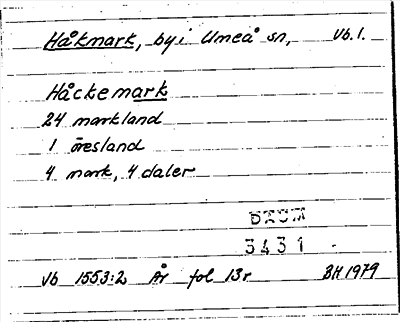 Håkmark, by i Umeå sn, Vb. 1.
Håckemark
24 markland
1 öresland
4 mark, 4 daler
DAUM
3431
Vb 1553:2 År fol 13r BH 1979